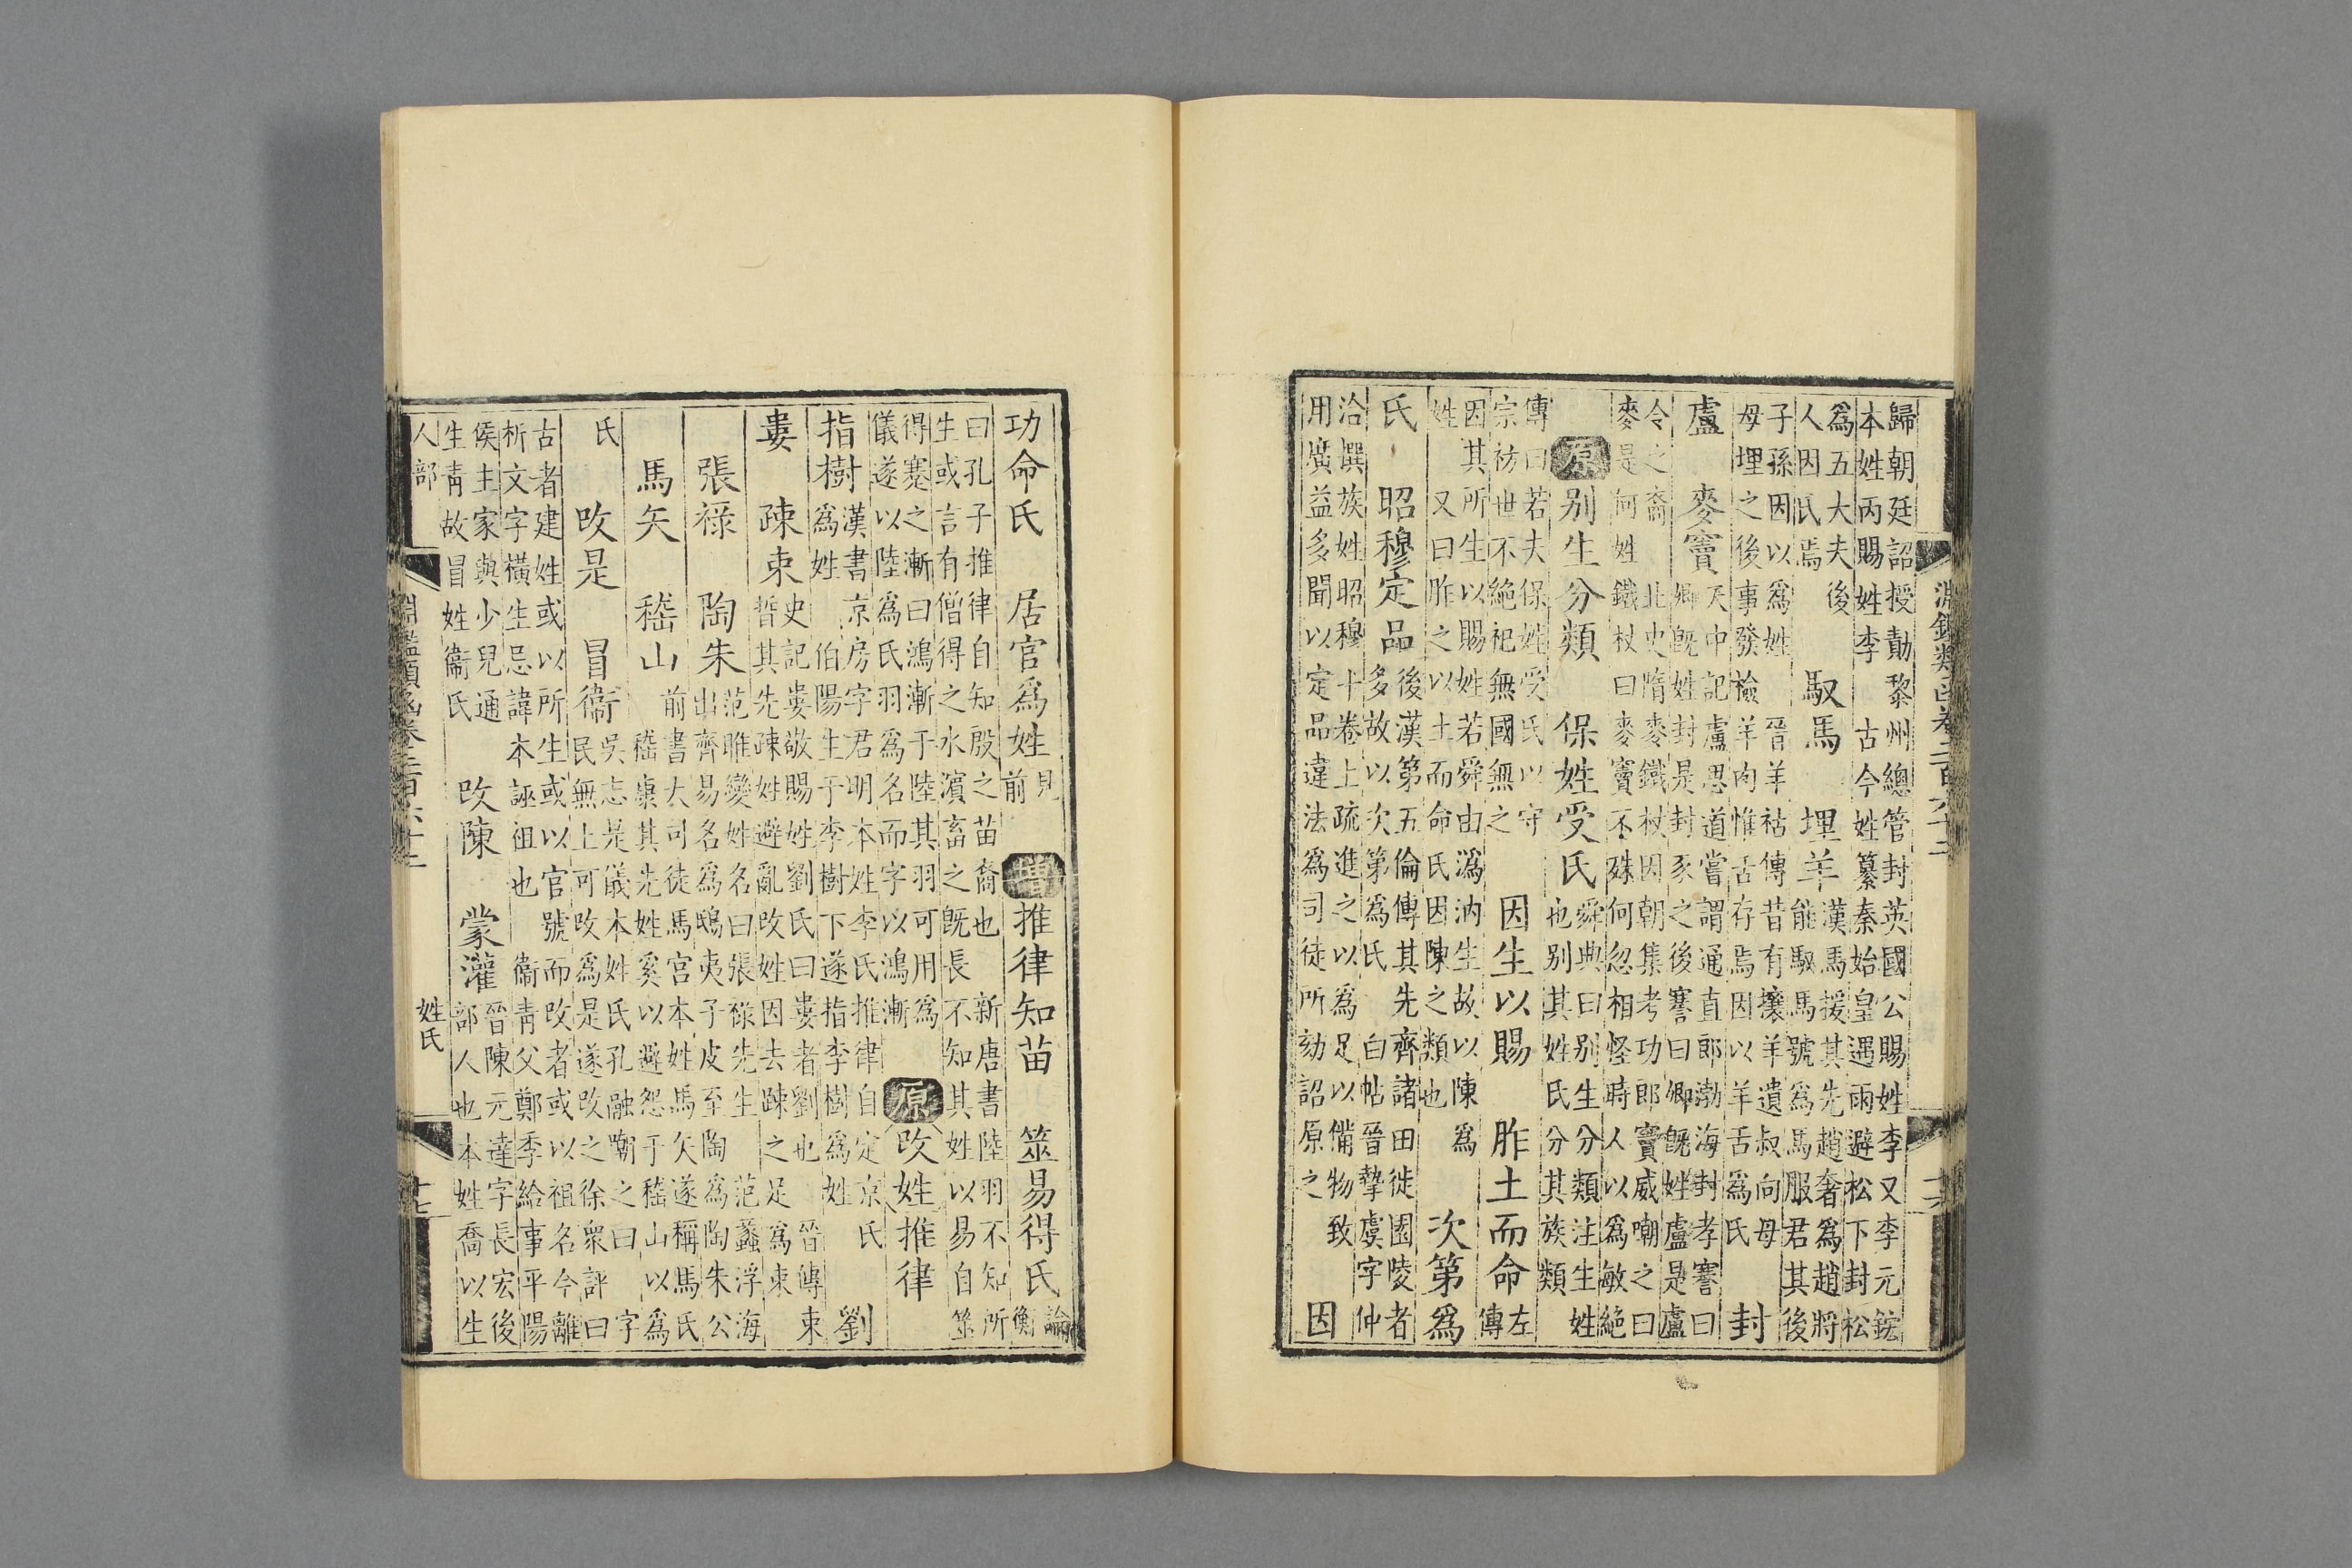 淵鑑類函卷二百六十二 十六
歸朝廷詔授勣黎州總管封英國公賜姓李又李元鋐
本姓丙賜姓李 古今姓纂秦始皇遇雨避松下封松
為五大夫後
人因氏焉
馭馬 埋羊
漢馬援其先趙奢為趙將
能馭馬號為馬服君其後
子孫因以為姓 晉羊祜傳昔有攘羊遺叔向母
母埋之後事發檢羊肉惟舌存焉因以羊舌為氏
封
盧 麥竇
天中記盧思道嘗謂通直郎渤海封孝騫曰
卿既姓封是封豕之後騫曰卿既姓盧是盧
令之裔 北史隋麥鐵杖因朝集考功郎竇威嘲之曰
麥是何姓 鐵杖曰麥竇不殊何忽相怪時人以為敏絕
原 别生分類 保姓受氏
舜典曰别生分類注生姓
也别其姓氏分其族類
傳曰若夫保姓受氏以守
宗祊世不絕祀無國無之
因生以賜 胙土而命
左
傳
因其所生以賜姓若舜由溈汭生故以陳為
姓 又曰胙之以土而命氏因陳之類也
次第為
氏 昭穆定品
後漢第五倫傳其先齊諸田徙園陵者
多故以次第為氏 白帖晉摯虞字仲
洽撰族姓昭穆十卷上疏進之以為足以備物致
用廣益多聞以定品違法為司徒所劾詔原之
因
功命氏 居官為姓
見
前
增 推律知苗 筮易得氏
論
衡
曰孔子推律自知殷之苗裔也 新唐書陸羽不知所
生或言有僧得之水濱畜之既長不知其姓以易自筮
得蹇之漸曰鴻漸于陸其羽可用為
儀遂以陸為氏羽為名而字以鴻漸
原 改姓推律
指樹
漢書京房字君明本姓李氏推律自定京氏
為姓 伯陽生于李樹下遂指李樹為姓
劉
婁 疎束
史記婁敬賜姓劉氏曰婁者劉也 晉傳束
皙其先疎姓避亂改姓因去疎之足為束
張祿 陶朱
范睢變姓名曰張祿先生 范蠡浮海
出齊易名為鴟夷子皮至陶為陶朱公
馬矢 嵇山
前書大司徒馬宮本姓馬矢遂稱馬氏
嵇康其先姓奚以避怨于嵇山以為
氏 改是 冒衞
吳志是儀本姓氏孔融嘲之曰 字
民無上可改為是遂改之徐衆評曰
古者建姓或以所生或以官號而改者或以祖名今離
析文字橫生忌諱本誣祖也 衞青父鄭季給事平陽
侯主家與少兒通
生青故冒姓衞氏
改陳 蒙灌
晉陳元達字長宏後
部人也本姓喬以生
人部 淵鑑類函卷二百六十二 姓氏 十七